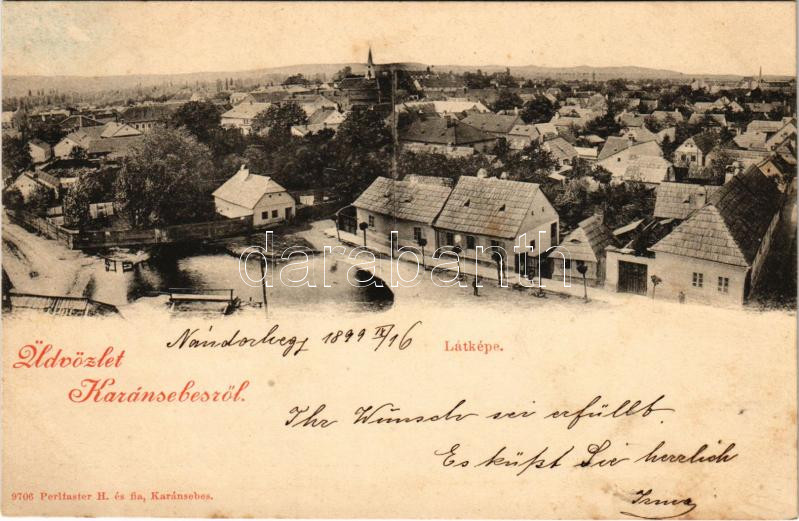 darabanth.com
Nándorhegy 1899 IV/16
Látképe.
Üdvözlet
Karánsebesről.
Ihr Wunsch sei erfüllt.
Es küßt Sie herzlich
Irma
9706 Perlfaster H. és fia, Karánsebes.